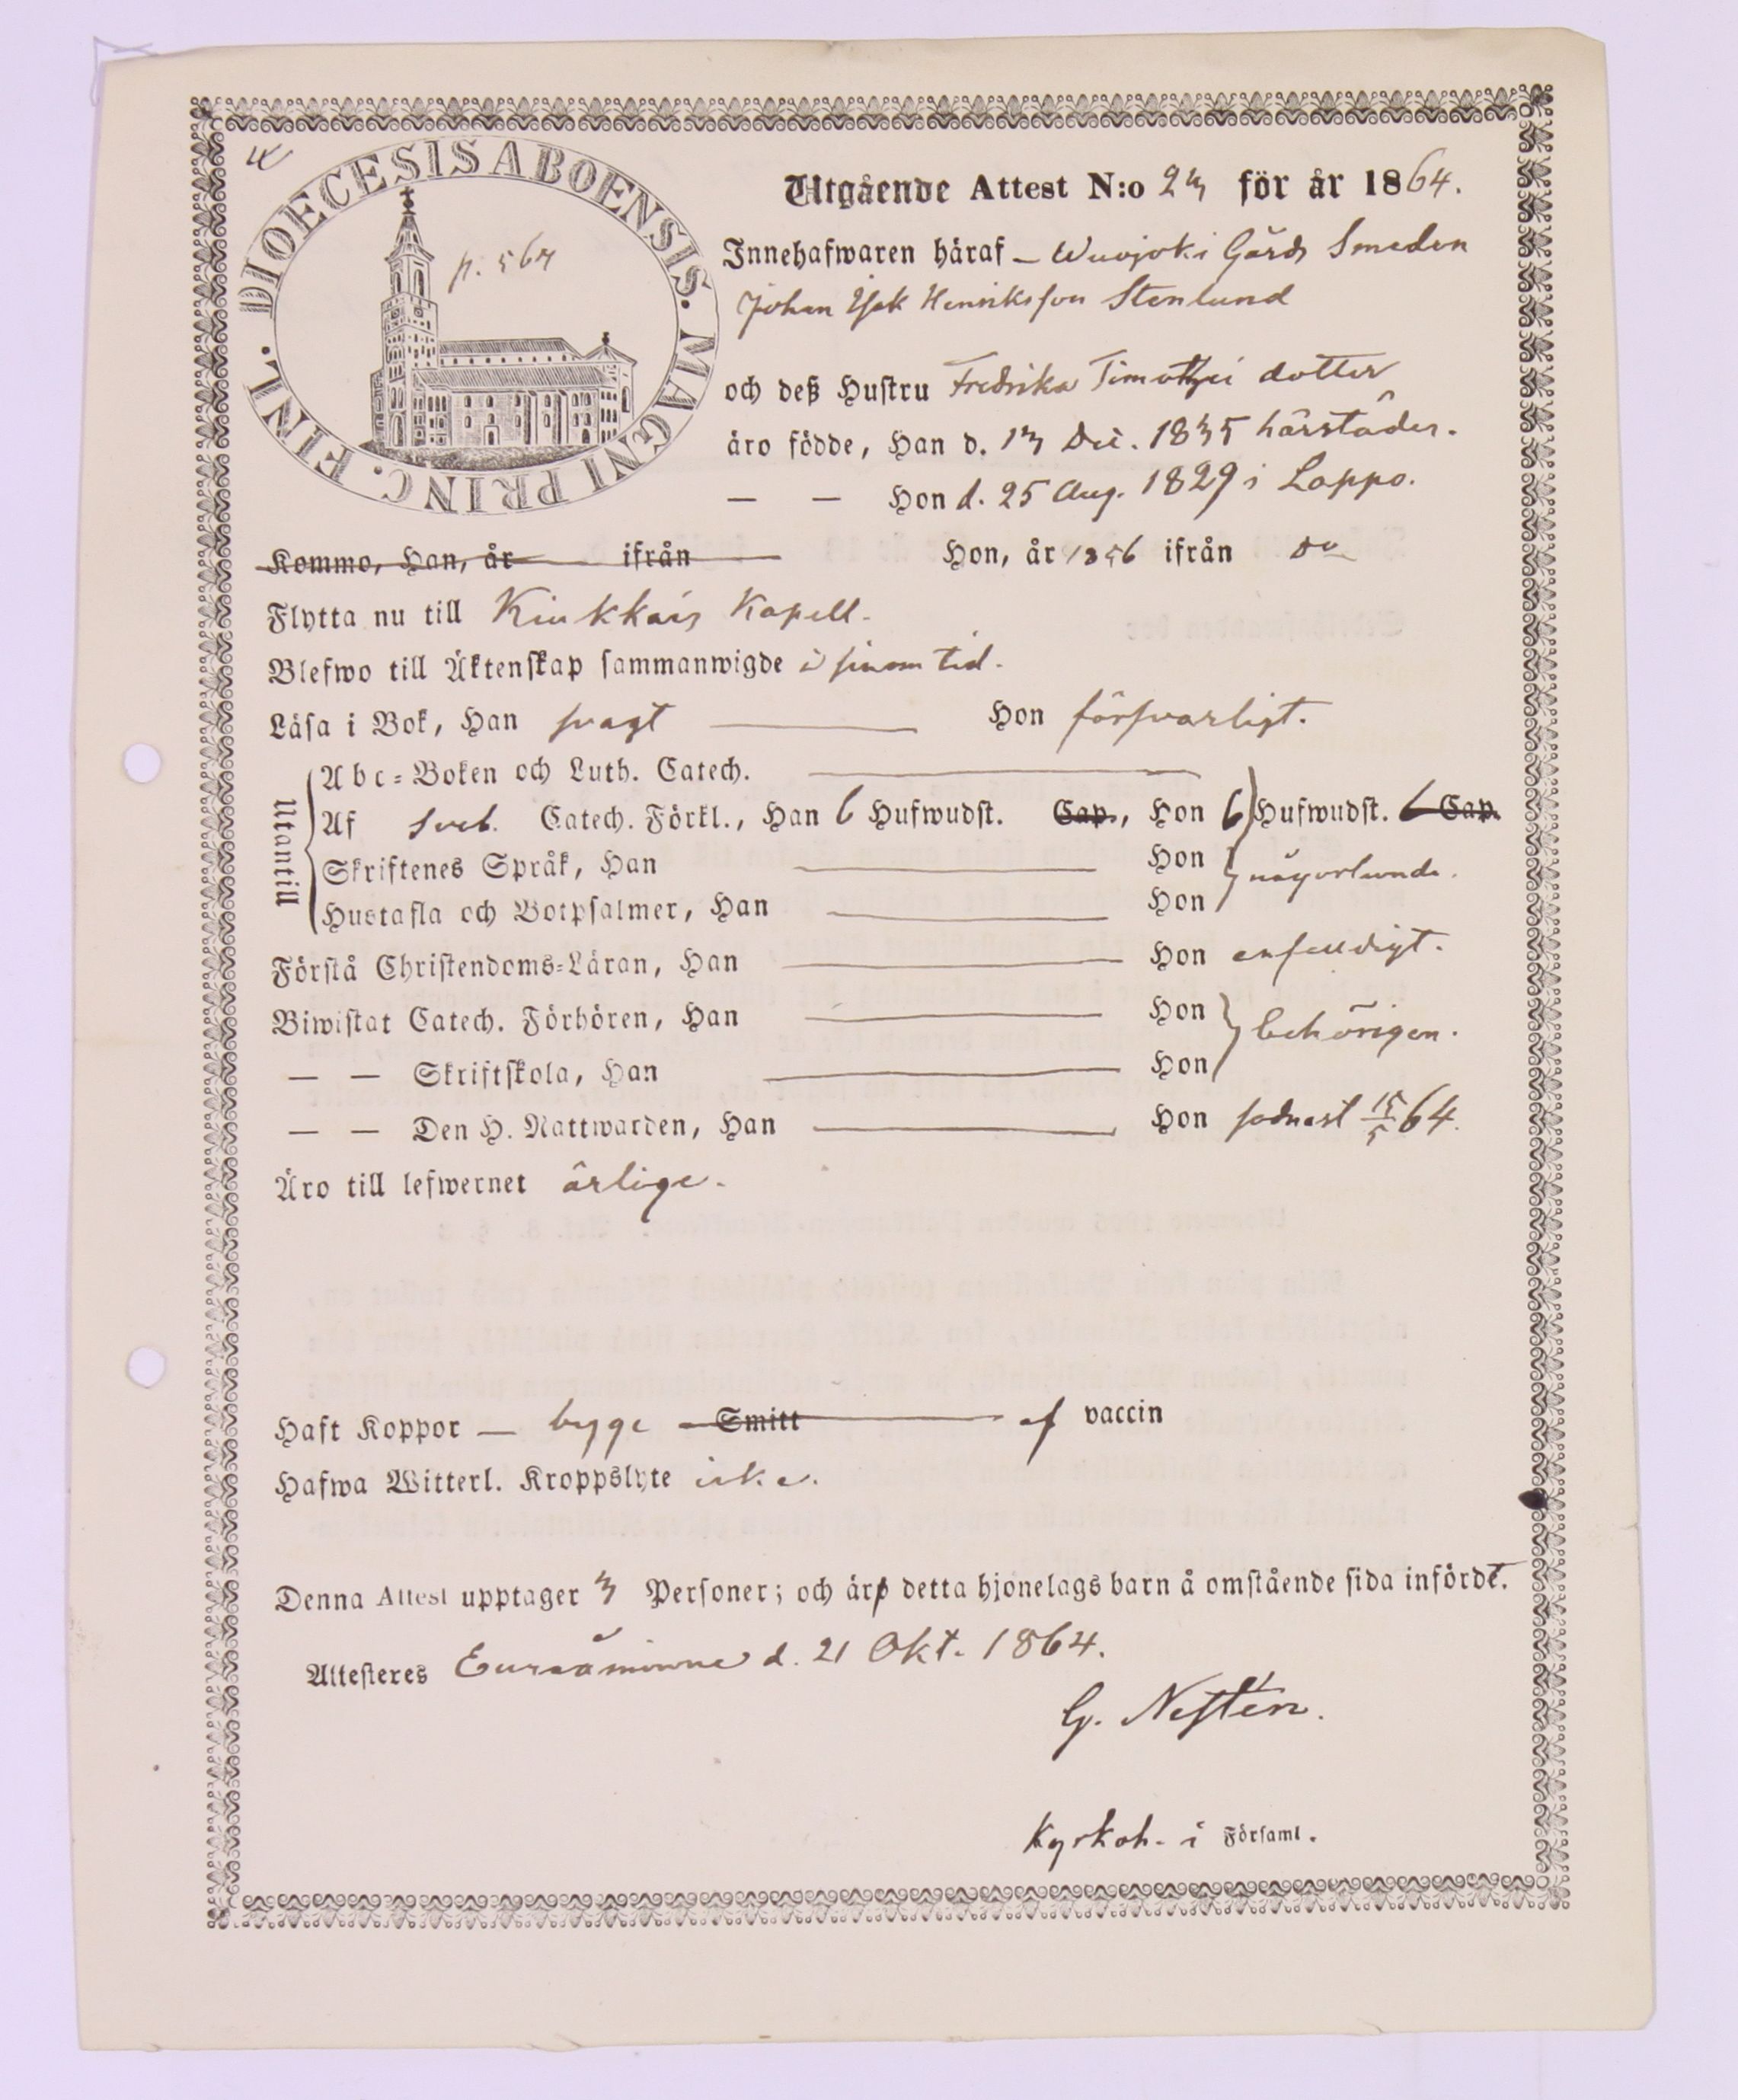 DIOECESIS ABOENSIS. MAGNI PRINC. FINL.
p. 563
Utgående Attest N:o 23 för år 1864.
Innehafwaren häraf – Wuojoki Gårds Smeden
Johan Isak Henriksson Stenlund
och deß Hustru Fredrika Timothei dotter
äro födde, Han d. 13 Dec. 1835 härstädes.
— — Hon d. 25 Aug. 1829 i Lappo.
Kommo, Han, år ifrån Hon, år 1856 ifrån Do
Flytta nu till Kiukkais Kapell.
Blefwo till Äktenskap sammanwigde i sinom tid.
Läsa i Bok, Han svagt — Hon försvarligt.
Utantill
Abc-Boken och Luth. Catech.
Af Sveb. Catech. Förkl., Han 6 Hufwudst. Cap., Hon 6 Hufwudst. 6 Cap.
Skriftenes Språk, Han — Hon någorlunda.
Hustafla och Botpsalmer, Han — Hon
Förstå Christendoms-Läran, Han — Hon enfaldigt.
Biwistat Catech. Förhören, Han — Hon behörigen.
— — Skriftskola, Han — Hon
— — Den H. Nattwarden, Han — Hon sednast 15/5 64.
Äro till lefwernet ärlige.
Haft Koppor — bägge Smitt — af vaccin
Hafwa Witterl. Kroppslyte icke.
Denna Attest upptager 3 Personer; och äro detta hjonelags barn å omstående sida infördt.
Attesteres Euraåminne d. 21 Okt. 1864.
G. Nestén.
Kyrkoh. i Församl.